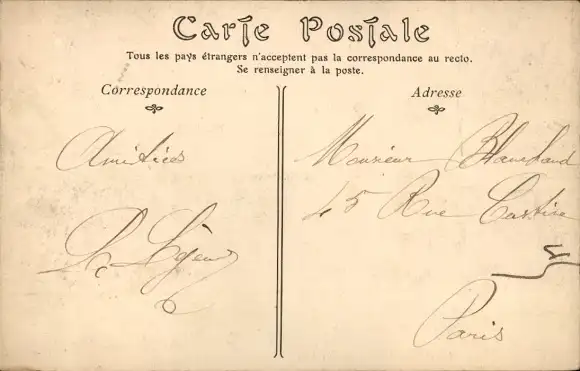 Carte Postale
Tous les pays étrangers n'acceptent pas la correspondance au recto.
Se renseigner à la poste.
Correspondance
Adresse
Amitiées
Monsieur Blanchaud
45 Rue
Paris